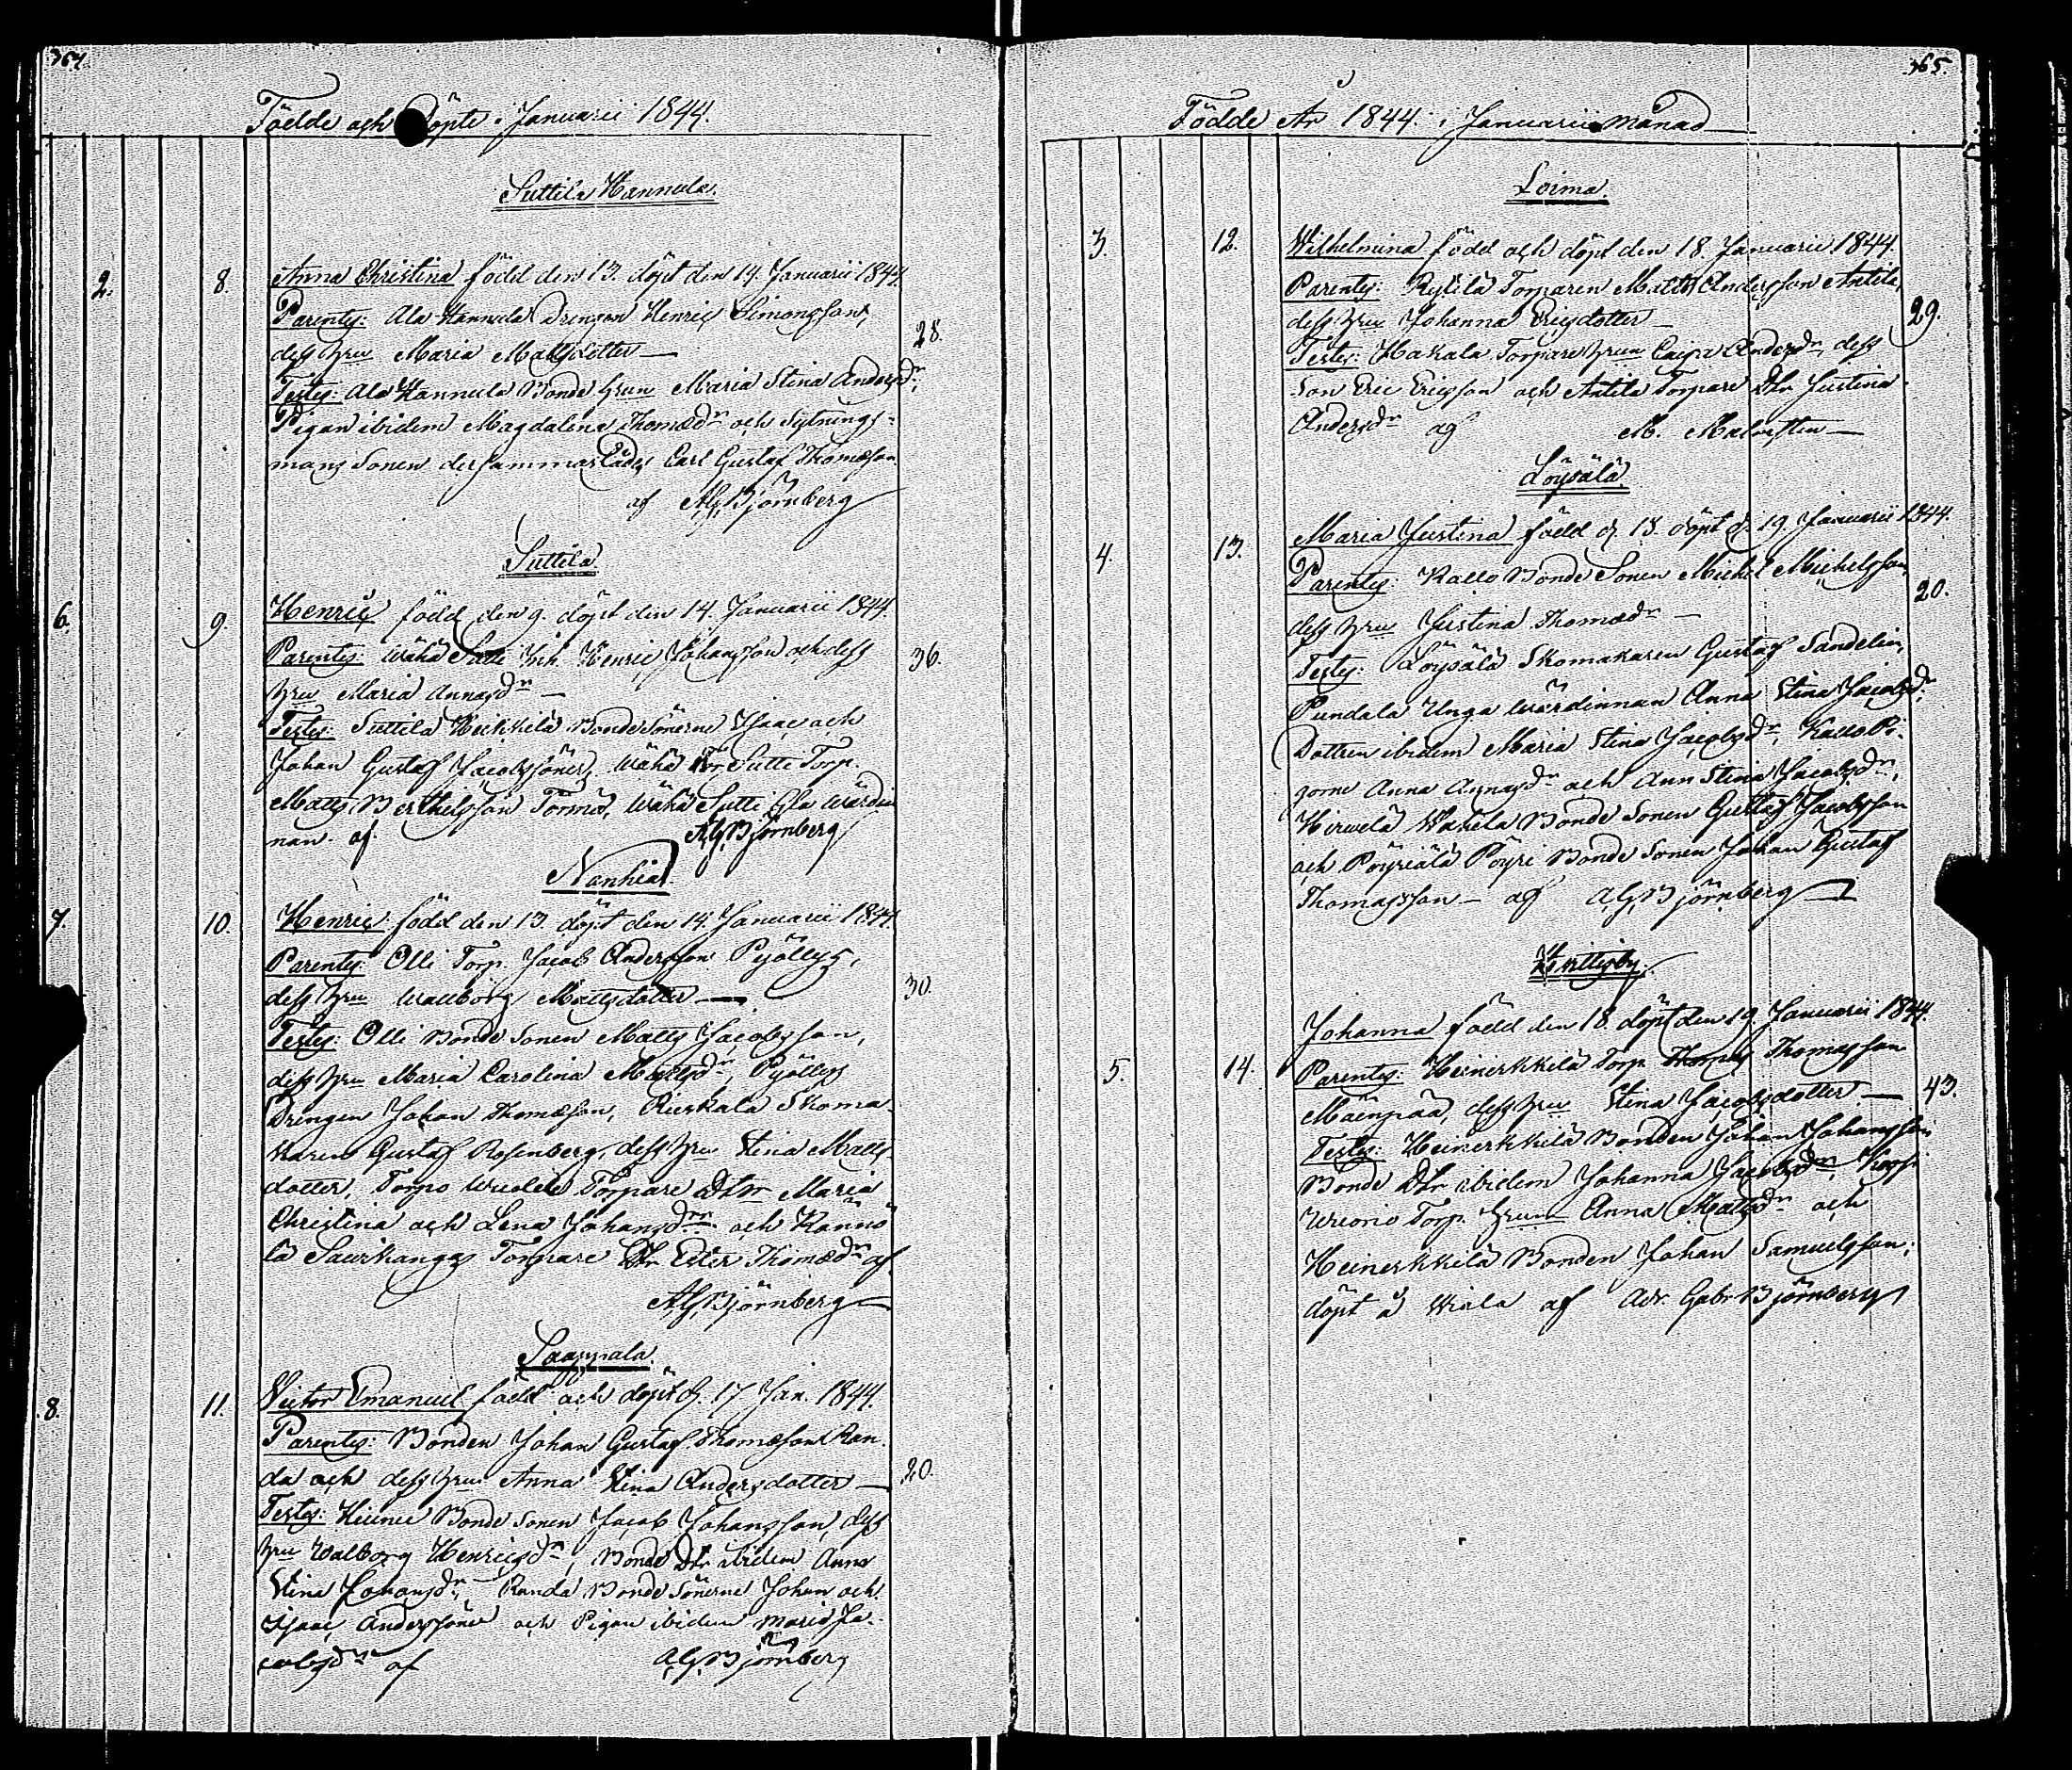 364.
Födde och Döpte i Januarii 1844.
Suttila Hannula.
2. 8. Anna Christina född den 13. döpt den 14. Januarii 1844.
Parentes: Ala Hannula Drengen Henric Simonsson,
dess hru Maria Mattsdotter — 28.
Testes: Ala Hannula Bonde hrun Maria Stina Andersdr,
Pigan ibidem Magdalena Thomædr och Sytnings-
mans Sonen dersammastädes Carl Gustaf Thomæson
af A.G. Björnberg
Suttila
6. 9. Henric född den 9. döpt den 14. Januarii 1844.
Parentes: Wähä Sutti Inh. Henric Johansson och dess 36.
hru Maria Annasdr —
Testes: Suttila Heikkilä Bonde Sönerne Isaac och
Johan Gustaf Jacobssöner, Wähä Sutti Torp.
Matts Berthelsson Tormä, Wähä Sutti Gla Wärdin
nan af A.G. Björnberg
Nanhia.
7. 10. Henric född den 13. döpt den 14. Januarii 1844.
Parentes: Olli Torp. Jacob Andersson Pyöllys,
dess hru Walborg Mattsdotter — 30.
Testes: Olli Bonde Sonen Matts Jacobsson,
dess hru Maria Carolina Mattsdr, Pyöllys
Drengen Johan Thomæson, Rieskala Skoma-
karen Gustaf Rosenberg, dess hru Stina Matts-
dotter, Torpo Torpare Dttr Maria
Christina och Lena Johansdrr och Kännö
lä Saurikangas Torpare Dtr Ester Thomædr af
A.G. Björnberg —
Saappala.
8. 11. Victor Emanuel född och döpt d. 17 Jan. 1844.
Parentes: Bonden Johan Gustaf Thomæson Ran-
da och dess hru Anna Stina Andersdotter — 20.
Testes: Bonde Sonen Jacob Johansson, dess
hru Walborg Henricsdr, Bonde Dtr ibidem Anna
Stina Johansdr, Randa Bonde Sönerne Johan och
Isaac Anderssöner och Pigan ibidem Maria Ja-
cobsdr af A.G. Björnberg
365.
Födde År 1844. i Januarii Månad
Loima.
3. 12. Wilhelmina född och döpt den 18. Januarii 1844.
Parentes: Kylilä Torparen Matts Andersson Antila,
dess hru Johanna Ericsdotter — 29.
Testes: Hakala Torpare hrun Caisa Andersdr, dess
Son Eric Ericsson och Antila Torpare Dtr Justina
Andersdr af M. Malmsten —
Löysälä.
4. 13. Maria Justina född d. 18. döpt d. 19. Januarii 1844.
Parentes: Kallo Bonde Sonen Michel Michelsson,
dess hru Justina Thomædr — 20.
Testes: Löysälä Skomakaren Gustaf Sandelin,
Pundala Unga Wärdinnan Anna Stina Jacobsdr,
Dottren ibidem Maria Stina Jacobsdr, Kallo Pi-
gorne Anna Annasdr och Ann Stina Jacobsdr,
Hirwelä Wahela Bonde Sonen Gustaf Jacobsson
och Pöyriälä Pöyri Bonde Sonen Johan Gustaf
Thomasson — af A.G. Björnberg —
Wittisby
5. 14. Johanna född den 18. döpt den 19. Januarii 1844.
Parentes: Heinerkkilä Torp. Thomasson
Mäenpää, dess hru Stina Jacobsdotter. — 43.
Testes: Heinerkkilä Bonden Johan Johansson
Bonde Dtr ibidem Johanna Jacobsdr,
Wuorio Torp. hrun Anna Mattsdr och
Heinerkkilä Bonden Johan Samuelsson,
döpt å Wiala af Adr. Gabr. Björnberg